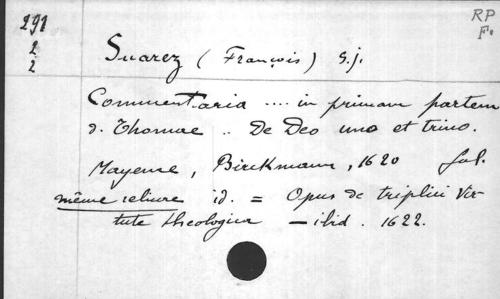 291
2
2
RP
F.
Suarez (François) S.j.
Commentaria .... in primam partem
d. Thomae .. De Deo uno et trino.
Mayence, Birckmann, 1620 fol.
même reliure id. = Opus de triplici vir-
tute theologica — ibid. 1622.